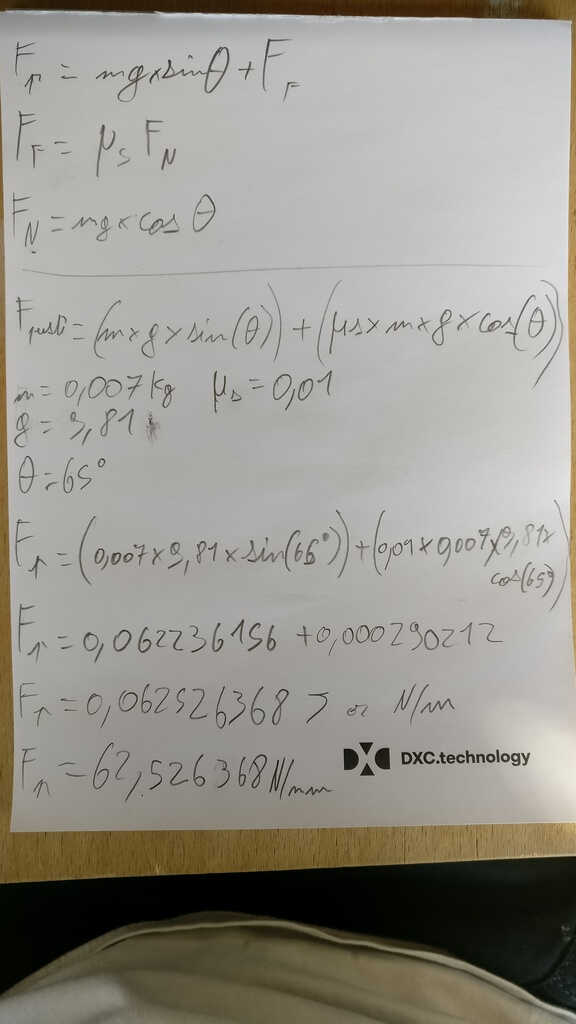 F↑ = mg×sinθ + F_F
F_F = μ_s F_N
F_N = mg × cos θ
F = (m×g×sin(θ)) + (μs×m×g×cos(θ))
m = 0,007kg μs = 0,01
g = 9,81
θ = 65°
F↑ = (0,007×9,81×sin(65°)) + (0,01×0,007×9,81×
cos(65°))
F↑ = 0,062236156 + 0,000290212
F↑ = 0,062526368 J or N/m
F↑ = 62,526368 N/mm
DXC.technology